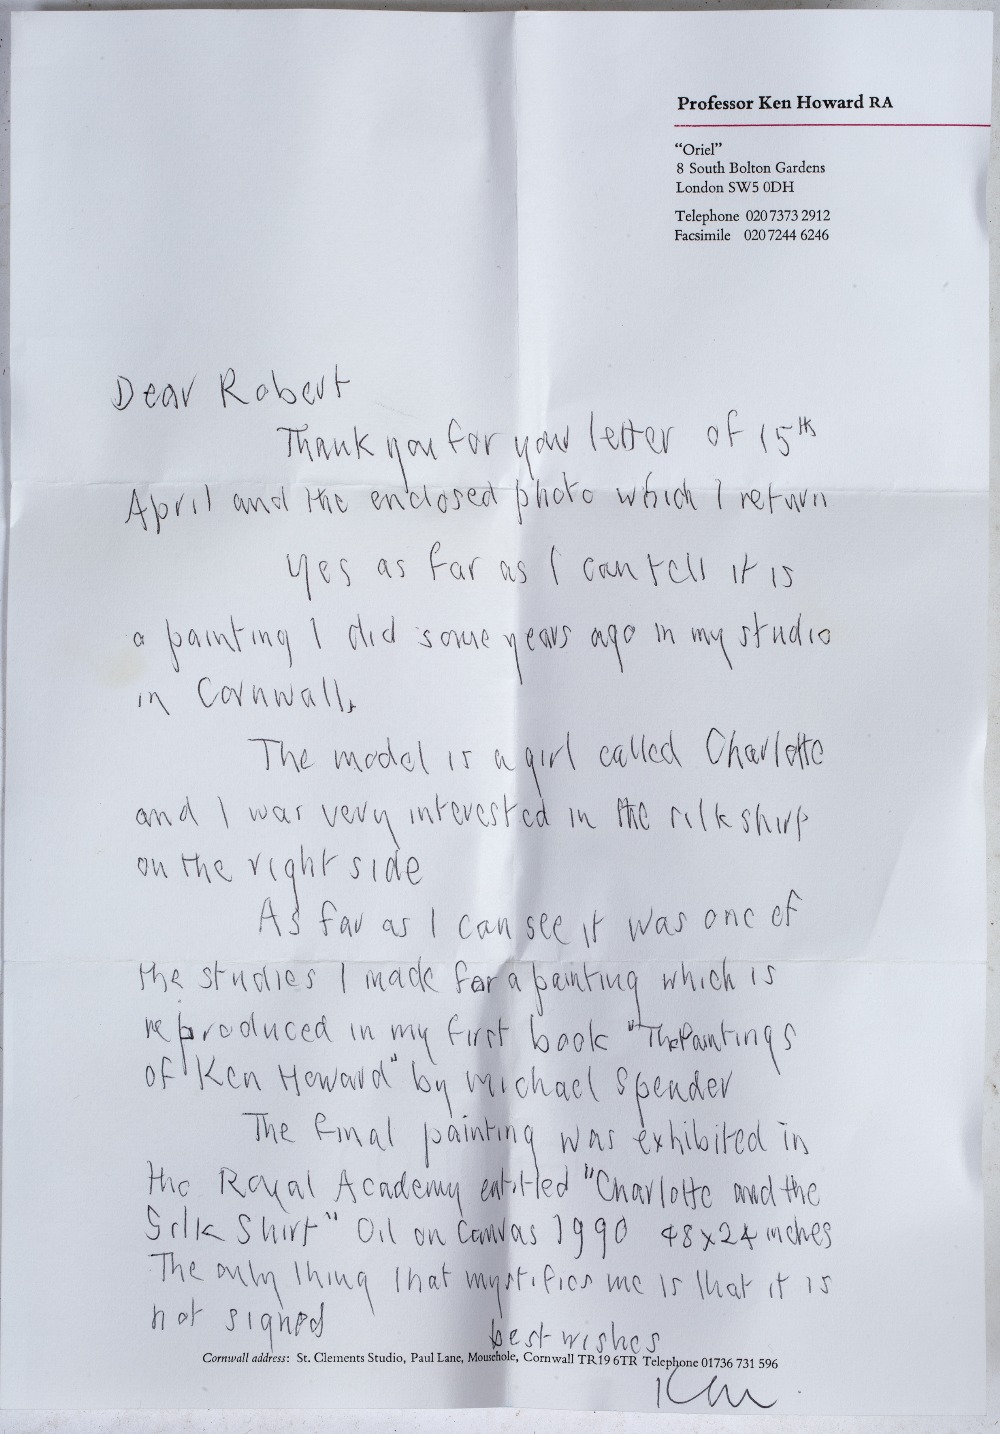 Professor Ken Howard RA
"Oriel"
8 South Bolton Gardens
London SW5 0DH
Telephone 020 7373 2912
Facsimile 020 7244 6246
Dear Robert
Thank you for your letter of 15th
April and the enclosed photo which I return
Yes as far as I can tell it is
a painting I did some years ago in my studio
in Cornwall.
The model is a girl called Charlotte
and I was very interested in the silk shirt
on the right side
As far as I can see it was one of
the studies I made for a painting which is
reproduced in my first book "The Paintings
of Ken Howard" by Michael Spender
The final painting was exhibited in
the Royal Academy entitled "Charlotte and the
Silk Shirt" Oil on Canvas 1990 48x24 inches
The only thing that mystifies me is that it is
not signed
best wishes
Cornwall address: St. Clements Studio, Paul Lane, Mousehole, Cornwall TR19 6TR Telephone 01736 731 596
Ken